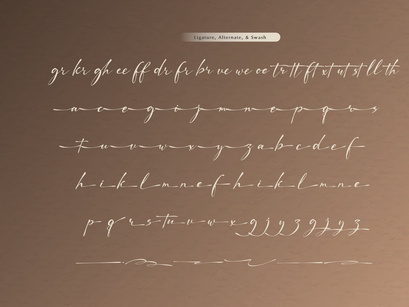 Ligature, Alternate, & Swash
gr kr gh ee ff dr fr br ve we oe tr tt ft xt ut st ll th
a c e g i j m n e p q r s
t u v w x y z a b c d e f
h i k l m n e f h i k l m n e
p q r s tu v w x g j y z g j y z